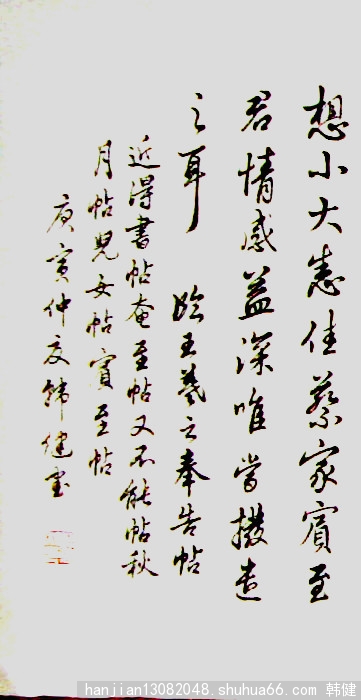 想小大悉佳蔡家賓至
君情感益深唯當撥遣
之耳 臨王羲之奉告帖
近得書帖奄至帖又不能帖秋
月帖兒女帖賓至帖
庚寅仲夏韓健書
hanjian13082048.shuhua66.com 韩健